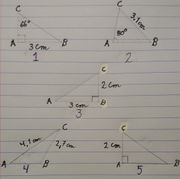 C
66°
A 3 cm B
1
C
3,1 cm
80°
A B
2
C
2 cm
A 3 cm B
3
C
4,1 cm 2,7 cm
A B
4
C
2 cm
A B
5